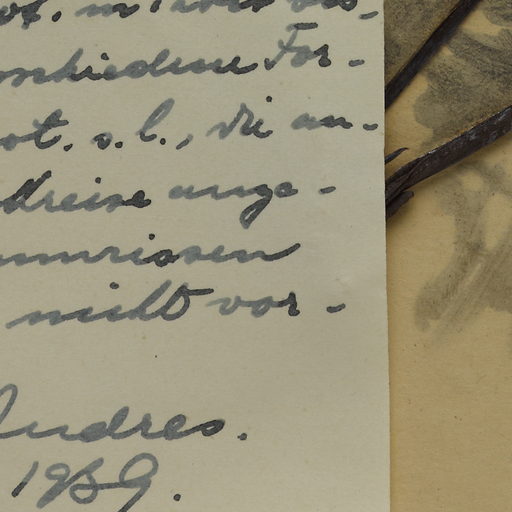 rschiedene For-
ot. s. l., die an-
Kreise ange-
umrissen
nicht vor-
Andres.
1939.